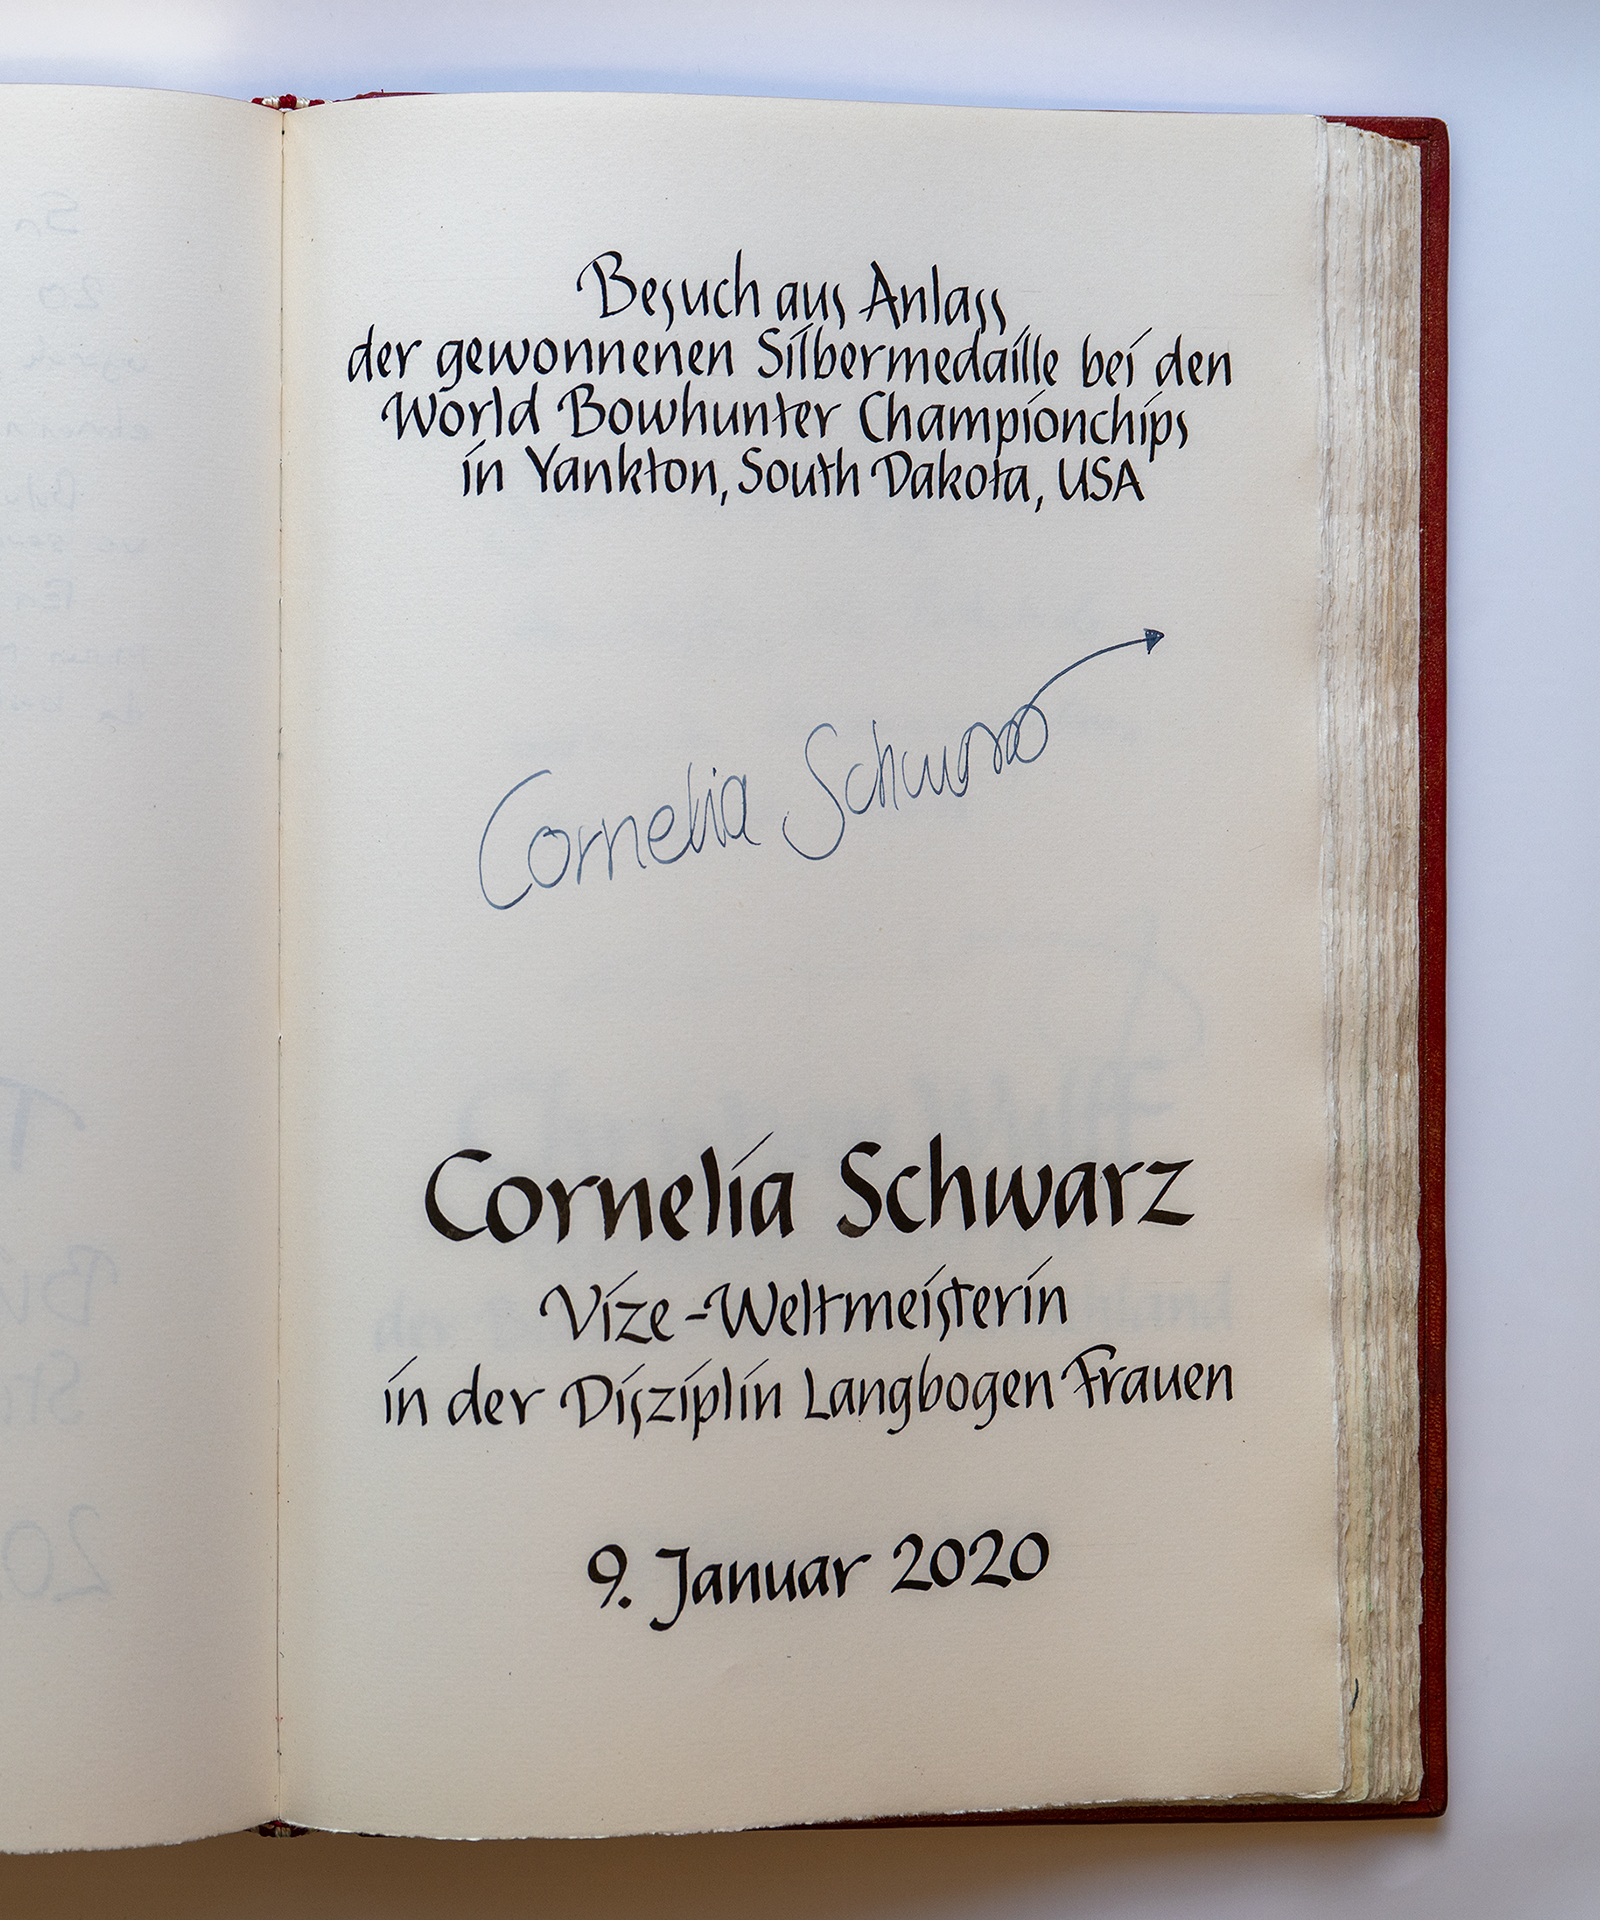 Besuch aus Anlass
der gewonnenen Silbermedaille bei den
World Bowhunter Championchips
in Yankton, South Dakota, USA
Cornelia Schwarz
Cornelia Schwarz
Vize-Weltmeisterin
in der Disziplin Langbogen Frauen
9. Januar 2020